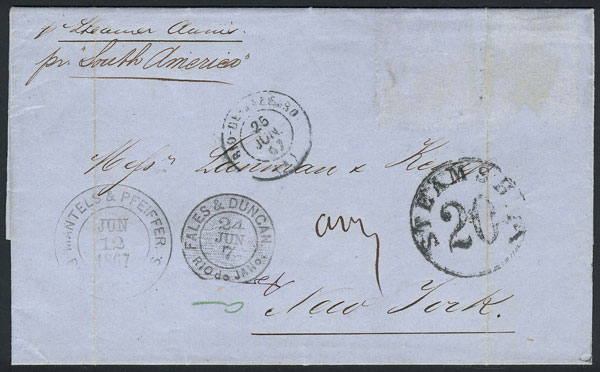 pr Steamer Annie
pr "South America"
RIO-DE-JANEIRO
25
JUN
67
Messrs Lanman & Kemp
STEAMSHIP
20
MANTELS & PFEIFFER
JUN
12
1867
FALES & DUNCAN
24
JUN
7
RIO do JANo
New York.